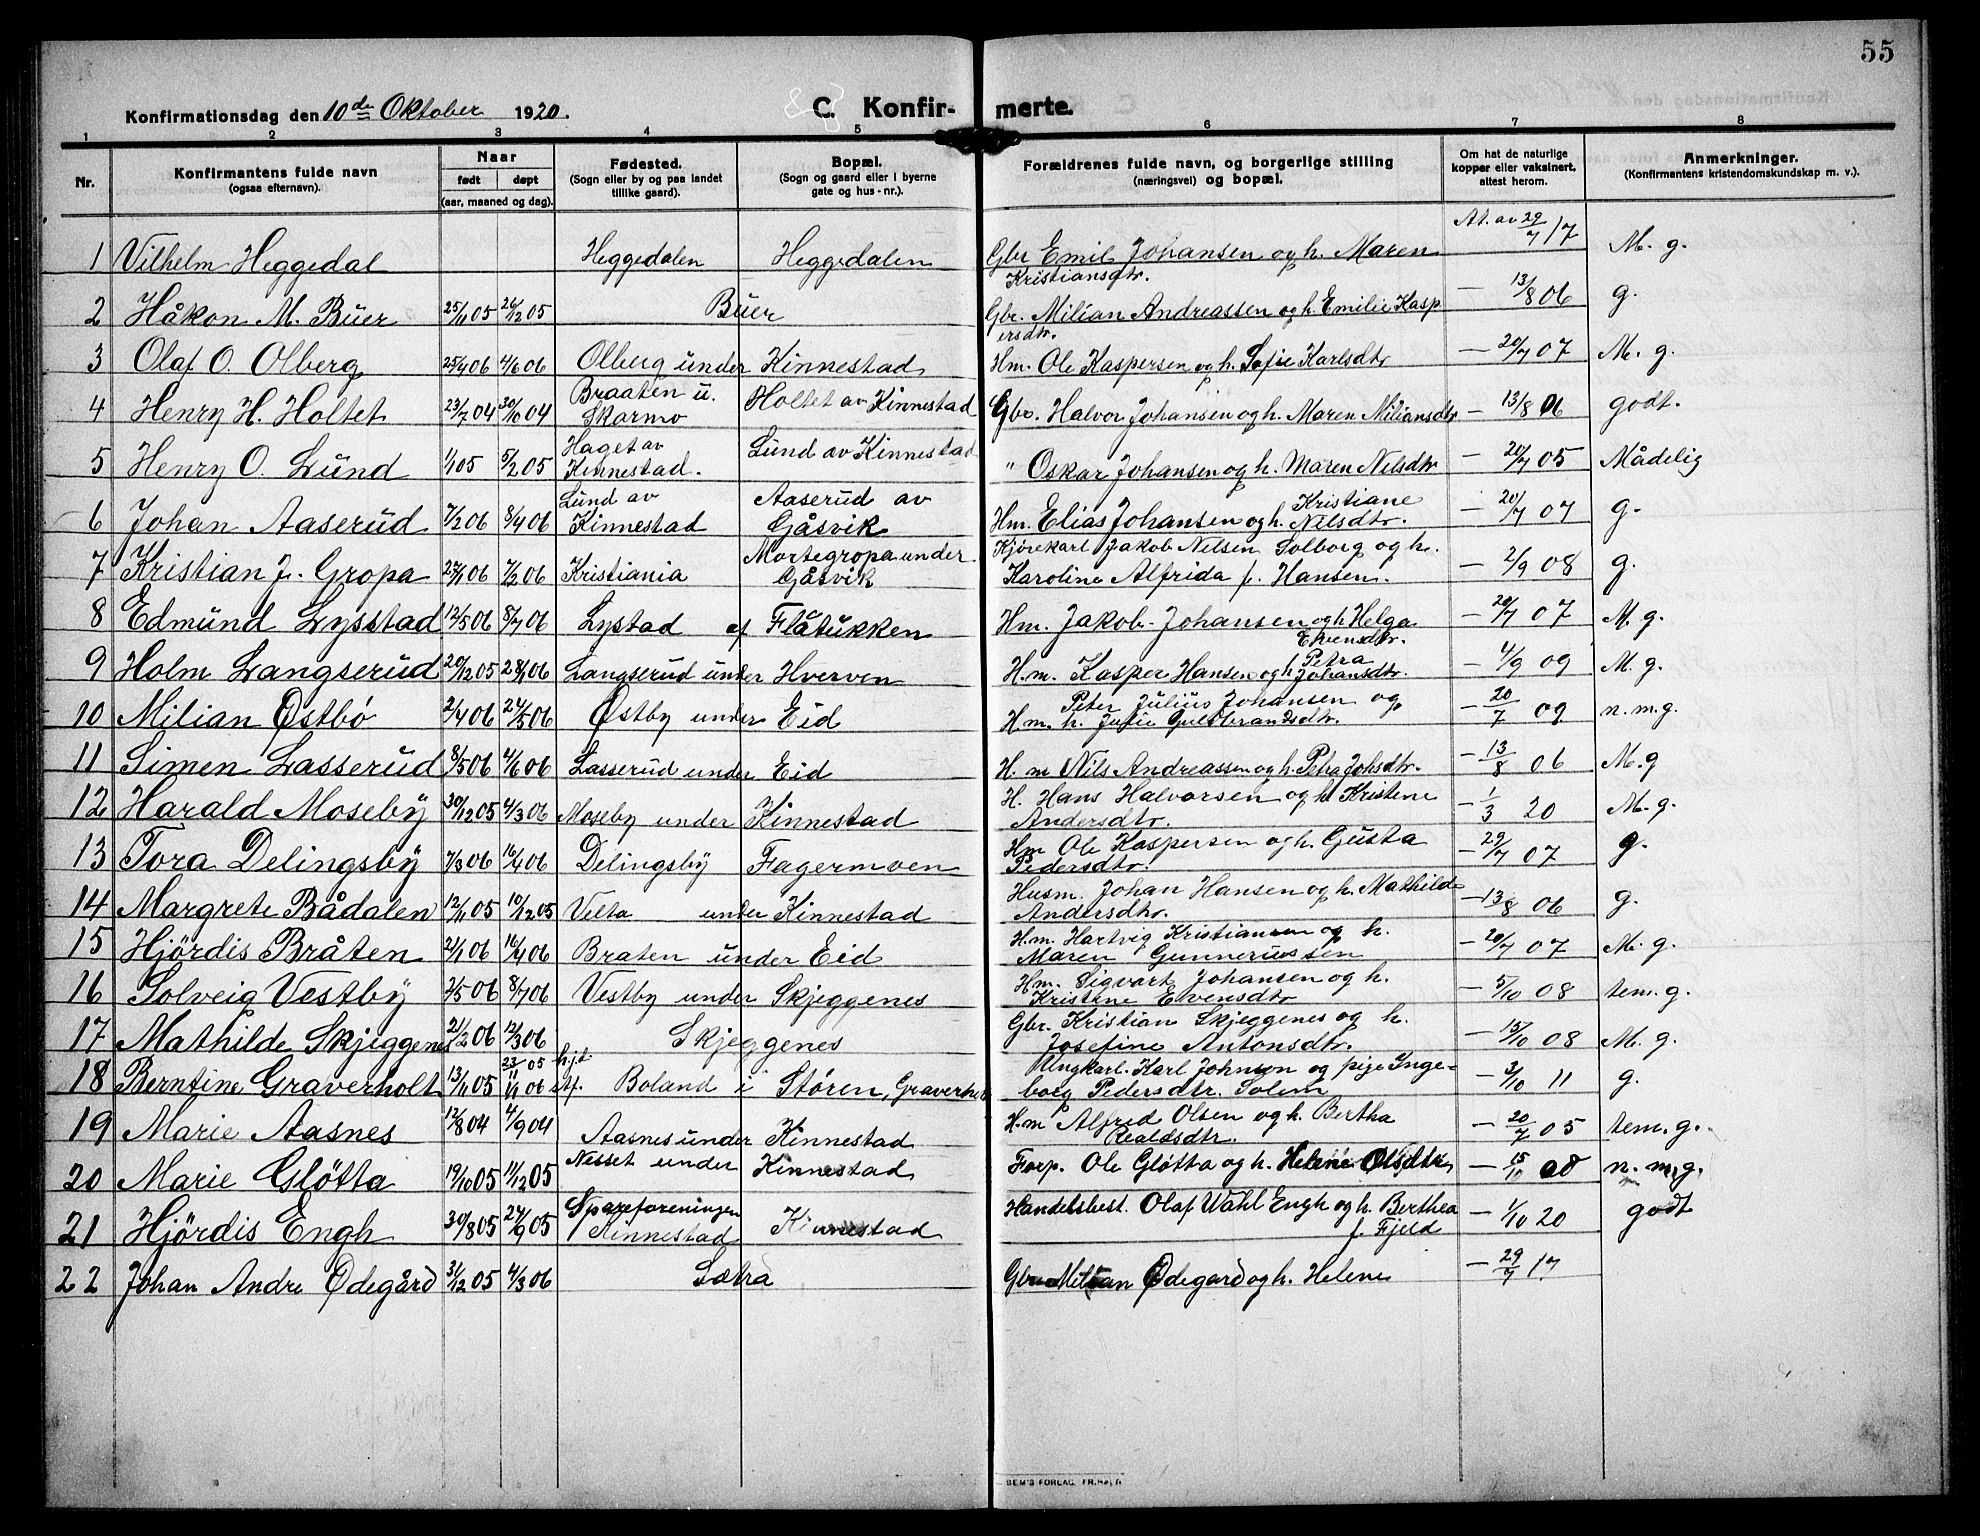 55
Konfirmationsdag den 10de Oktober 1920.
C. Konfirmerte.
1 2 3 4 5 6 7 8
Nr. Konfirmantens fulde navn (ogsaa efternavn). Naar født døpt (aar, maaned og dag). Fødested. (Sogn eller by og paa landet tillike gaard). Bopæl. (Sogn og gaard eller i byerne gate og hus-nr.). Forældrenes fulde navn, og borgerlige stilling (næringsvei) og bopæl. Om hat de naturlige kopper eller vaksinert, attest herom. Anmerkninger. (Konfirmantens kristendomskundskap m. v.).
1 Vilhelm Heggedal Heggedalen Heggedalen Gbr Emil Johansen og h. Maren Kristiansdtr. At. av 29/7 17 M. g.
2 Håkon M. Buer 25/11 05 26/12 05 Buer Gbr. Milian Andreassen og h. Emilie Kaspersdtr. — 13/8 06 g.
3 Olaf O. Olberg 25/4 06 4/6 06 Olberg under Kinnestad Hm. Ole Kaspersen og h. Sofie Karlsdtr — 20/7 07 M. g.
4 Henry H. Holtet 23/7 04 30/10 04 Braaten u. Skarmo Holtet av Kinnestad Gbr. Halvor Johansen og h. Maren Miliansdtr — 13/8 06 godt.
5 Henry O. Lund 1/1 05 5/2 05 Haget av Kinnestad. Lund av Kinnestad " Oskar Johansen og h. Maren Nilsdtr — 20/7 05 Mådelig
6 Johan Aaserud 7/2 06 8/4 06 Lund av Kinnestad Aaserud av Gåsvik Hm. Elias Johansen og h. Kristiane Nilsdtr. — 20/7 07 g.
7 Kristian J. Gropa 27/1 06 7/2 06 Kristiania Mortegropa under Gåsvik Kjørekarl Jakob Nilsen Solborg og h. Karoline Alfrida f. Hansen. — 2/9 08 g.
8 Edmund Lysstad 12/5 06 8/7 06 Lystad af Flåtukken Hm. Jakob Johansen og h Helga Evensdtr. — 20/7 07 M. g.
9 Holm Langserud 20/12 05 28/1 06 Langserud under Hverven H.m. Kasper Hansen og h Petra Johansdtr. — 4/9 09 M. g.
10 Milian Østbö 2/4 06 27/5 06 Østby under Eid Hm. Peter Julius Johansen og h. Julie Gulbrandsdtr. — 20/7 09 n. m. g.
11 Simen Lasserud 8/5 06 4/6 06 Lasserud under Eid H. m Nils Andreassen og h. Petra Johsdtr. — 13/8 06 M. g
12 Harald Moseby 30/12 05 4/3 06 Moseby under Kinnestad H. Hans Halvorsen og h Kristene Andersdtr. — 1/3 20 M. g.
13 Tora Delingsby 7/3 06 16/4 06 Delingsby Fagermoen Hm Ole Kaspersen og h. Gusta Pedersdtr. — 29/7 07 g.
14 Margrete Bådalen 12/11 05 10/12 05 Velta under Kinnestad Husm. Johan Hansen og h. Mathilde Andersdtr. — 13/8 06 g.
15 Hjördis Bråten 21/1 06 16/4 06 Braten under Eid H.m. Hartvig Kristiansen og h. Maren Gunnerussen — 20/7 07 M. g.
16 Solveig Vestby 2/5 06 8/7 06 Vestby under Skjeggenes Hm. Sigvart Johansen og h. Kristine Evensdtr — 5/10 08 tem. g.
17 Mathilde Skjeggenes 21/2 06 12/3 06 Skjeggenes Gbr. Kristian Skjeggenes og h. Josefine Antonsdtr. — 15/10 08 M. g.
18 Berntine Graverholt 13/11 05 23/11 05 hjd. 1/1 06 stf. Boland i Støren, Graverholt Ungkarl. Karl Johnson og pige Ingeborg Pedersdtr. Solem — 3/10 11 g.
19 Marie Aasnes 12/8 04 4/9 04 Aasnes under Kinnestad H.m Alfred Olsen og h. Bertha — 20/7 05 tem. g.
20 Marie Glötta 19/10 05 11/12 05 Nesset under Kinnestad Forp. Ole Glötta og h. Helene Olsdtr — 15/10 08 n. m. g.
21 Hjördis Engh 30/8 05 24/9 05 Spareforeningen Kinnestad Kinnestad Handelsbest. Olaf Wahl Engh og h. Berthea f. Fjeld — 1/10 20 godt
22 Johan Andre Ødegård 31/12 05 4/3 06 Sætra Gbr Milian Ødegard og h. Helene — 29/7 17
SEM'S FORLAG, FR.HALD.